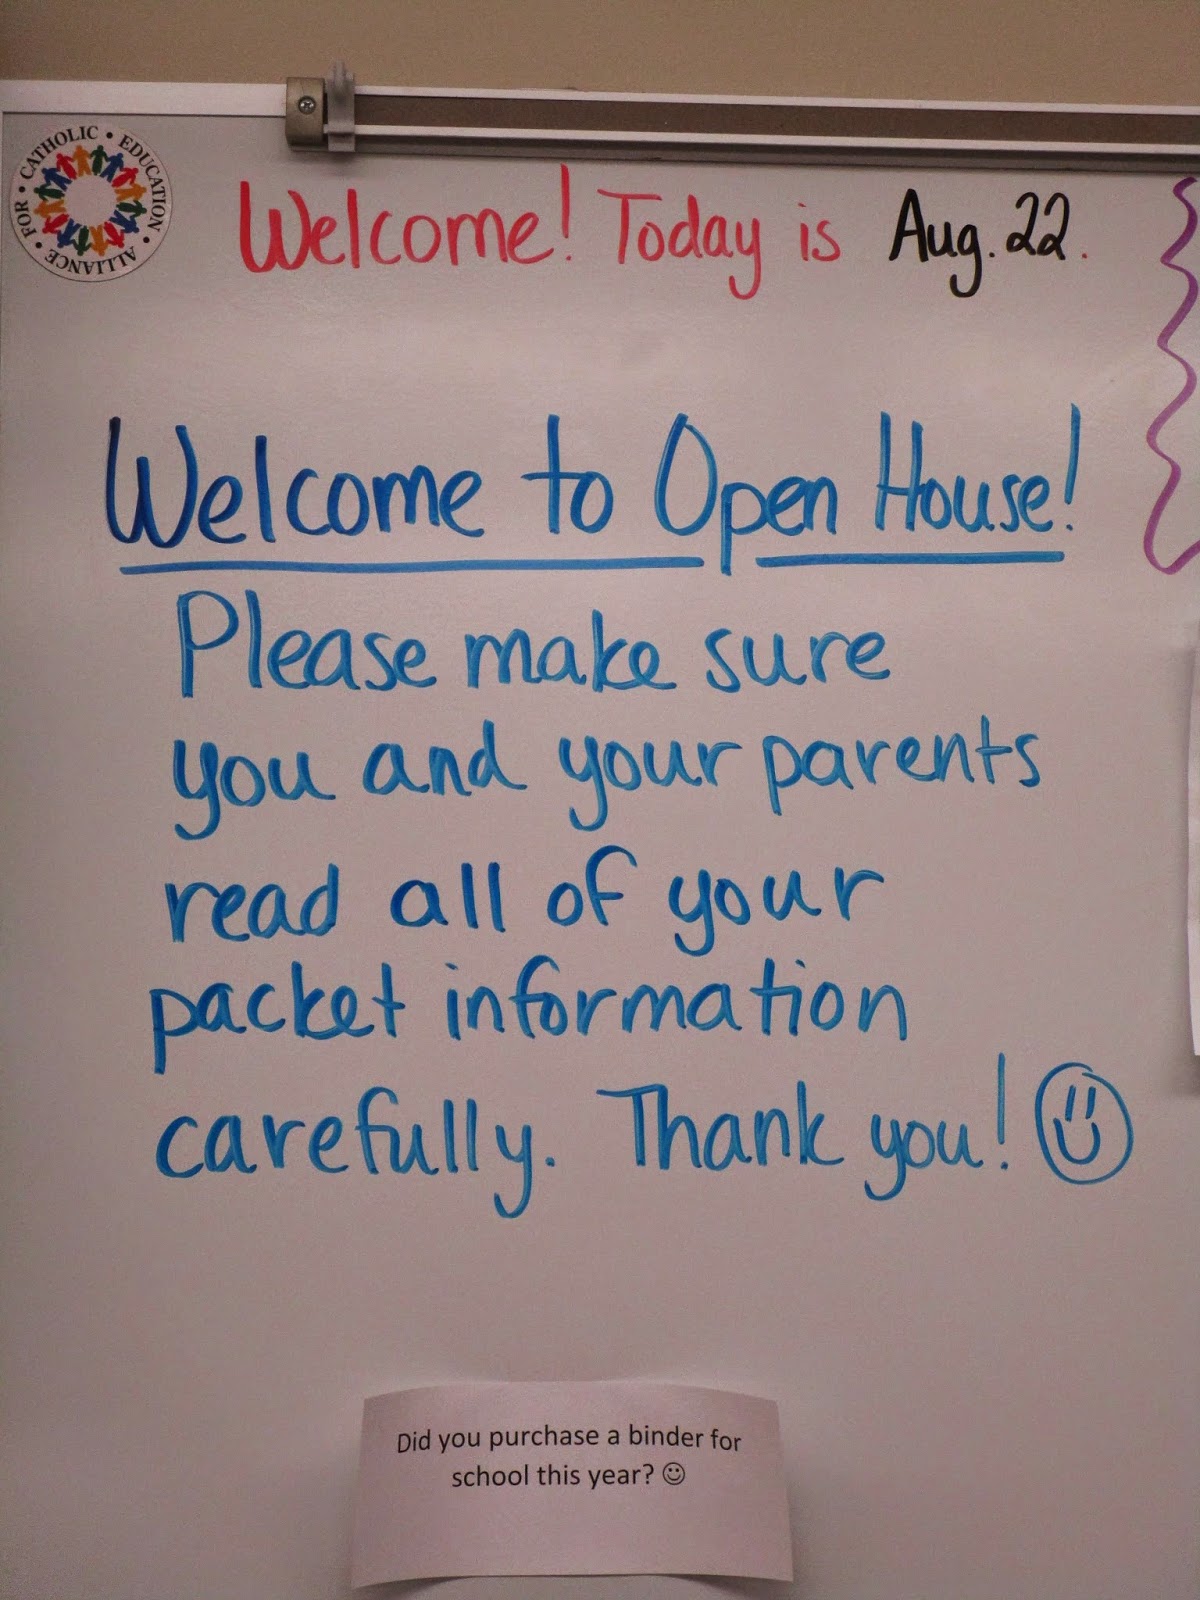 ALLIANCE • FOR • CATHOLIC • EDUCATION •
Welcome! Today is Aug. 22.
Welcome to Open House!
Please make sure
you and your parents
read all of your
packet information
carefully. Thank you!
Did you purchase a binder for
school this year? ☺